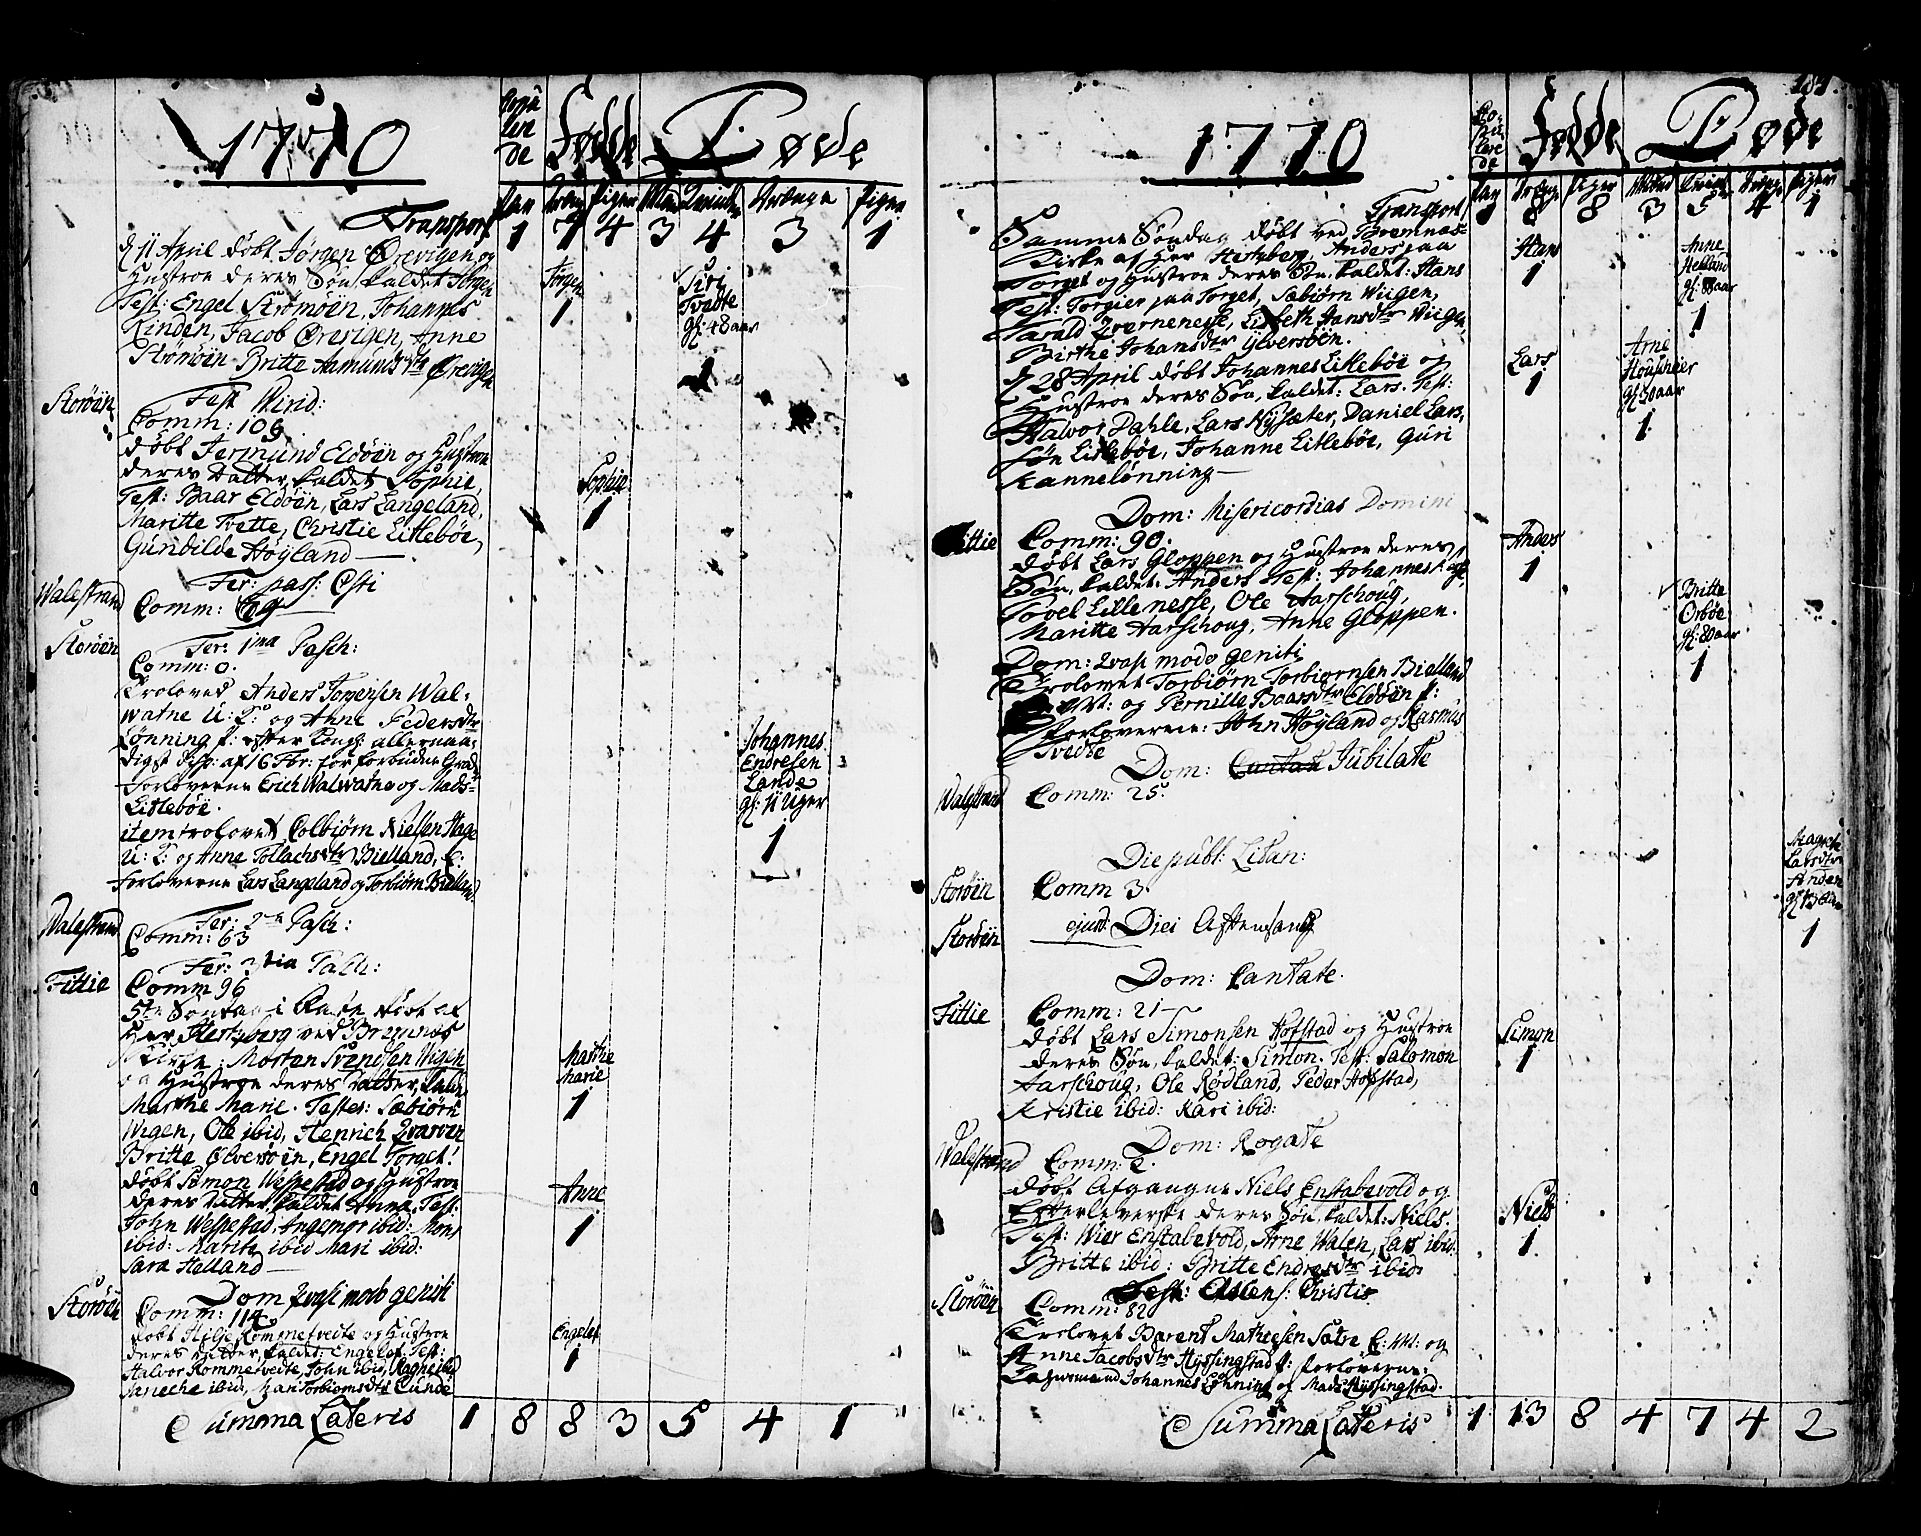 1770
Copulerede
Fødde
Døde
Par
Dreng
Piger
Mand
Qvind
Drenge
Piger
Transport 1 7 4 3 4 3 1
d. 11 April døbt Jørgen Ørevigen og
Hustroe deres Søn, kaldet Jørgen
Test: Engel Strømøen, Johannes
Rinden, Jacob Ørevigen, Anne
Strømøen Britte Aamunds dtr Ørevigen
Jørgen
1
Siri
Tvedte
gl: 48 aar
1
Storøen
Fest Virid:
Comm: 109
døbt Jermund Eldøen og Hustroe
deres Datter, kaldet Sophie,
Test: Baar Eldøen, Lars Langeland,
Maritte Tvette, Christie Litlebøe,
Gundilde Høyland
Sophie
1
Walestrand
Fer: pass: Csti
Comm: 69
Storøen
Fer: 1ma Pasch:
Comm: 0.
Troloved Anders Jørgensen Wal-
watne U: K: og Anne Pedersdtr
Lønning P: efter Kongl: allernaa-
digst Disp: af 16 Fbr: for forbudne Grad
Forloverne Erich Walwatne og Mads
Litlebøe.
item trolovet Colbiørn Nielsen Hage
U: K: og Anne Tollachsdtr Bielland, E:
Forloverne Lars Langeland og Torbiørn Bielland
Johannes
Endresen
Lande
gl: 11 Uger
1
Walestrand
Fer: 2da Pasch:
Comm: 63
Fittie
Fer: 3tia Pasch:
Comm 96
5te Søndag i Faste døbt af
Her Hertzberg ved Bremnes
Kirke: Mortan Svendsen Wigen
og Hustroe deres Datter, kaldet
Marthe Marie. Testes: Sæbiørn
Wigen, Ole ibid, Henrich Qvarven
Britte Ølversøen, Engel Torget.
døbt Simon Wespestad og Hustroe
deres Datter, kaldet Anne, Test:
John Wespestad, Ingemor ibid: Mons
ibid: Marite ibid Mari ibid:
Sara Helland
Marthe
Marie
1
Anne
1
Storøen
Dom Qvasi modo geniti
Comm: 114
døbt Hilje Rommetvedte og Hustroe
deres datter, kaldet: Engelef. Test:
Halvor Rommetvedte, John ibid, Ragne ibid
Janeche ibid, Kari Torbiornsdtr Eünde
Engelef
1
Summa Lateris 1 8 8 3 5 4 1
1770
Copulerede
Fødde
Døde
Par
Drenge
Piger
Mænd
Qvind
Drenge
Piger
Transport 1 8 8 3 5 4 1
Samme Søndag døbt ved Bremnæs
Kirke af Her Hertzberg, Anders paa
Torget og Hustroe deres Søn, kaldet: Hans
Test: Torgier paa Torget, Sæbiørn Wiigen,
Harald Qvernenesse, Lisbeth Hansdtr Wiigen,
Birthe Johansdtr Ølversøen.
d 28 April døbt Johannes Litlebøe og
Hustroe deres Søn, kaldet: Lars. Test:
Halvor Dahle, Lars Nysæter, Daniel Lars-
søn Litlebøe, Johanne Litlebøe, Guri
Kannelønning
Hans
1
Anne
Helland
gl: 88 aar
1
Lars
1
Arne
Houscheer
gl 50 aar
1
Fittie
Dom: Misericordias Domini
Comm: 90.
døbt Lars Gloppen og Hustroe deres
Søn, kaldet: Anders. Test: Johannes
Tovel Lillenesse, Ole Aarschoug,
Maritte Aarschoug, Anne Gloppen.
Anders
1
Britte
Orbøe
gl: 80 aar
1
Dom: Qvasi modo geniti
Trolovet Torbiørn Torbiornsen Bielland
og Pernille Baarsdtr Eldøen P:
Forloverne: John Høyland og Rasmus
Tvedte
Walestrand
Dom: Cantate Jubilate
Comm: 25.
Storøen
Die publ: Litan:
Comm 3
Magrete
Larsdtr
1
Storøen
ejusd: Diei Aftensang
Fittie
Dom: Cantate.
Comm: 21
døbt Lars Simonsen Hofstad og Hustroe
deres Søn, kaldet: Simon. Test: Salomon
Aarschoug, Ole Rødland, Peder Hofstad,
Kristie ibid: Kari ibid:
Simon
1
Walestrand
Dom: Rogate
Comm: 2.
døbt Afgangne Niels Enstabevold og
Efterleverske deres Søn, kaldet: Niels.
Test: Wier Enstabevold, Arne Walen, Lars ibid.
Britte ibid: Britte Endresdtr ibid:
Niels
1.
Storøen
Fest: Ascens: Christi
Comm: 82
Trolovet Barent Matheesen Sætre E: M: og
Anne Jacobsdtr Hyssingstad P: forloverne:
Johannes Lønning og Mads Hyssingstad.
Summa Lateris 1 13 8 4 7 4 2